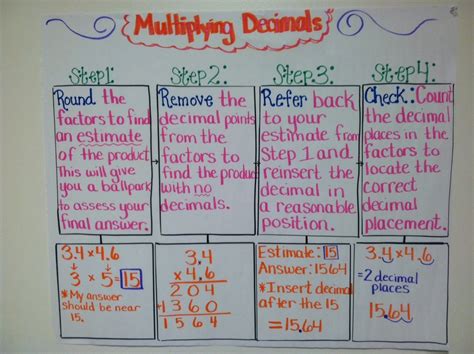 Multiplying Decimals
Step 1:
Round the
factors to find
an estimate
of the product.
This will give
you a ballpark
to assess your
final answer.
3.4 x 4.6
3 x 5 = 15
*My answer
should be near
15.
Step 2:
Remove the
decimal points
from the
factors to
find the product
with no
decimals.
3.4
x 4.6
204
+1360
1564
Step 3:
Refer back
to your
estimate from
Step 1 and
reinsert the
decimal in
a reasonable
position.
Estimate: 15
Answer: 1564
*Insert decimal
after the 15
=15.64
Step 4:
Check: Count
the decimal
places in the
factors to
locate the
correct
decimal
placement.
3.4 x 4.6
=2 decimal
places
15.64